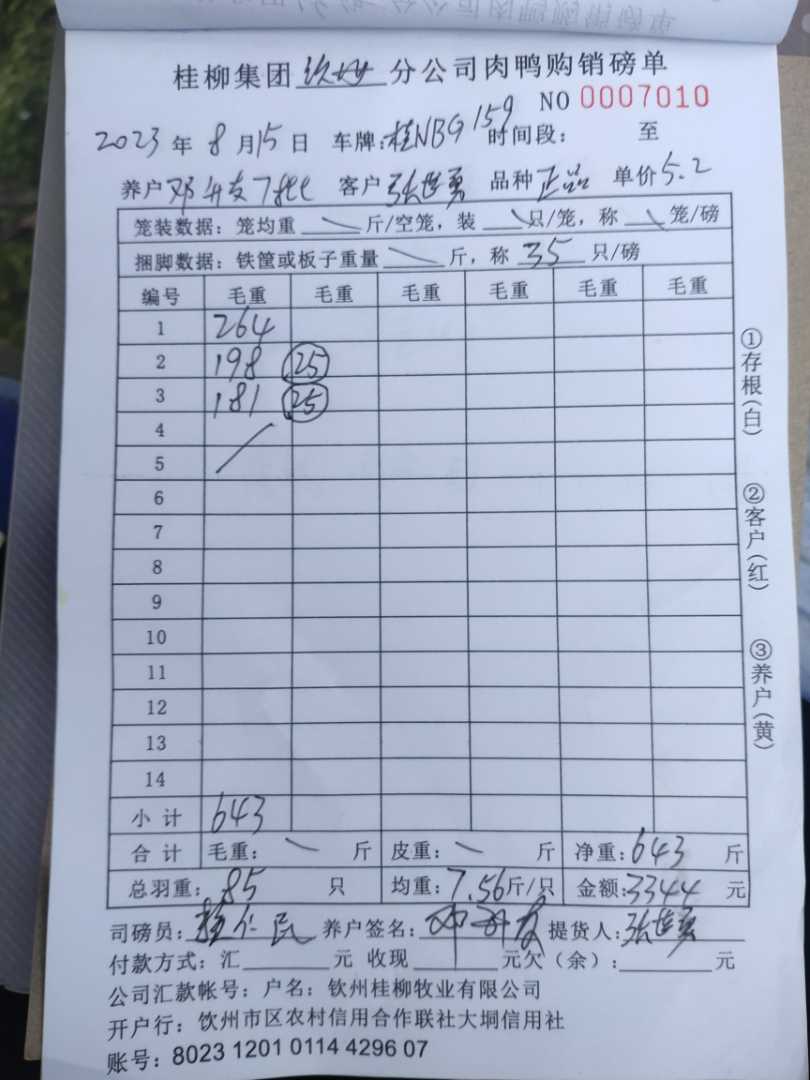 桂柳集团钦州分公司肉鸭购销磅单
NO 0007010
2023年8月15日 车牌:桂NBG159 时间段: 至
养户 邓 客户 张世勇 品种 正品 单价 5.2
笼装数据: 笼均重 斤/空笼, 装 只/笼, 称 笼/磅
捆脚数据: 铁筐或板子重量 斤, 称 35 只/磅
编号 毛重 毛重 毛重 毛重 毛重 毛重
1 264
2 198 25
3 181 25
4
5
6
7
8
9
10
11
12
13
14
小计 643
合计 毛重: 斤 皮重: 斤 净重: 643 斤
总羽重: 85 只 均重: 7.56斤/只 金额: 3344 元
司磅员: 养户签名: 邓 提货人: 张世勇
付款方式: 汇 元 收现 元欠(余): 元
公司汇款帐号: 户名: 钦州桂柳牧业有限公司
开户行: 钦州市区农村信用合作联社大垌信用社
账号: 8023 1201 0114 4296 07
①存根(白)
②客户(红)
③养户(黄)